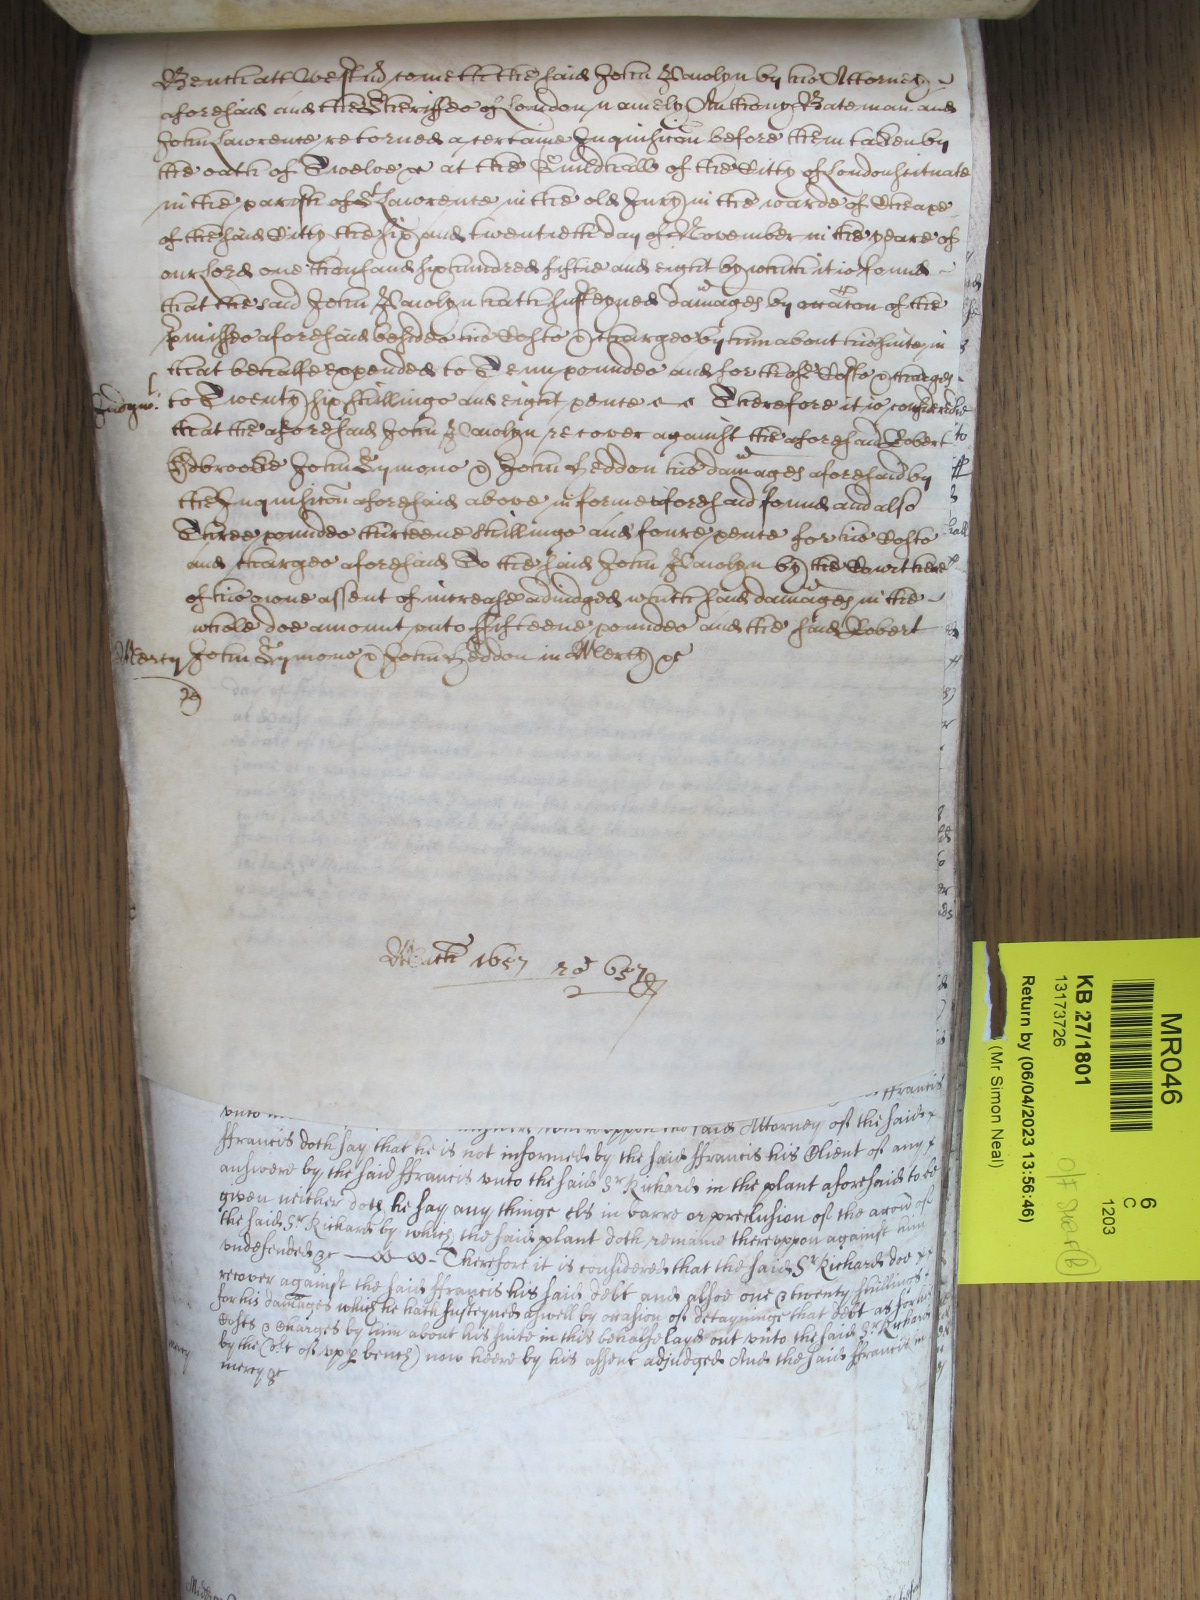 Bench att Westmr cometh the said John Rawlyn by his Attorney
aforesaid and the Sheriffes of London namely Anthony Bateman and
John Lawrence retorned a certaine Inquisicon before them taken by
the oath of Twelve &c at the Guildhall of the Citty of London scituate
in the parish of St Lawrence in the old Jury in the warde of Cheape
of the said Citty the six and twentieth day of November in the yeare of
our Lord one thousand six hundred fiftie and eight by which it is found
that the said John Rawlyn hath susteyned damages by occacon of the
pmisses aforesaid besides his Costs & charges by him about his suite in
that behalfe expended to Tenn poundes and for those Costs & charges
Judgmt to Twenty six shillings and eight pence Therefore it is considered
that the aforesaid John Rawlyn recover against the aforesaid Robert
John Symons & John Heddon his damages aforesaid by
the Inquisicon aforesaid above in forme aforesaid found and also
Three poundes thirteene shillings and foure pence for his Costs
and charges aforesaid To the said John Rawlyn by the Court here
of his owne assent of increase adiudged which said damages in the
whole doe amount vnto ffifteene poundes and the said Robert
Mercy John Symons & John Heddon in Mercy &c
Mich 1657 ro 657
ffrancis
vnto said Attorney of the said
ffrancis doth say that he is not informed by the said ffrancis his Client of any
answere by the said ffrancis vnto the said Sr Richard in the plaint aforesaid to be
given neither doth he say any thinge els in barre or preclusion of the accon of
the said Sr Richard by which the said plaint doth remaine therevppon against him
vndefended &c Therefore it is considered that the said Sr Richard doe
recover against the said ffrancis his said debt and alsoe one & twenty shillings
for his damages which he hath susteyned aswell by occasion of detayninge that debt as for his
Costs & Charges by him about his suite in this behalfe layd out vnto the said Sr Richard
by the Crt of vpp bench now heere by his assent adjudged And the said ffrancis in
mercy &c
MR046
6
C
1203
KB 27/1801
13173726
Return by (06/04/2023 13:56:46)
(Mr Simon Neal)